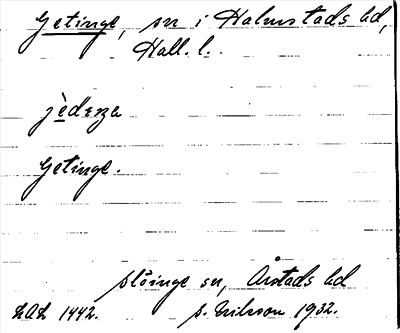 Getinge, sn i Halmstads hd,
Hall. l.
Getinge.
Slöinge sn, Årstads hd
LAL 1442. S. Nilsson 1932.